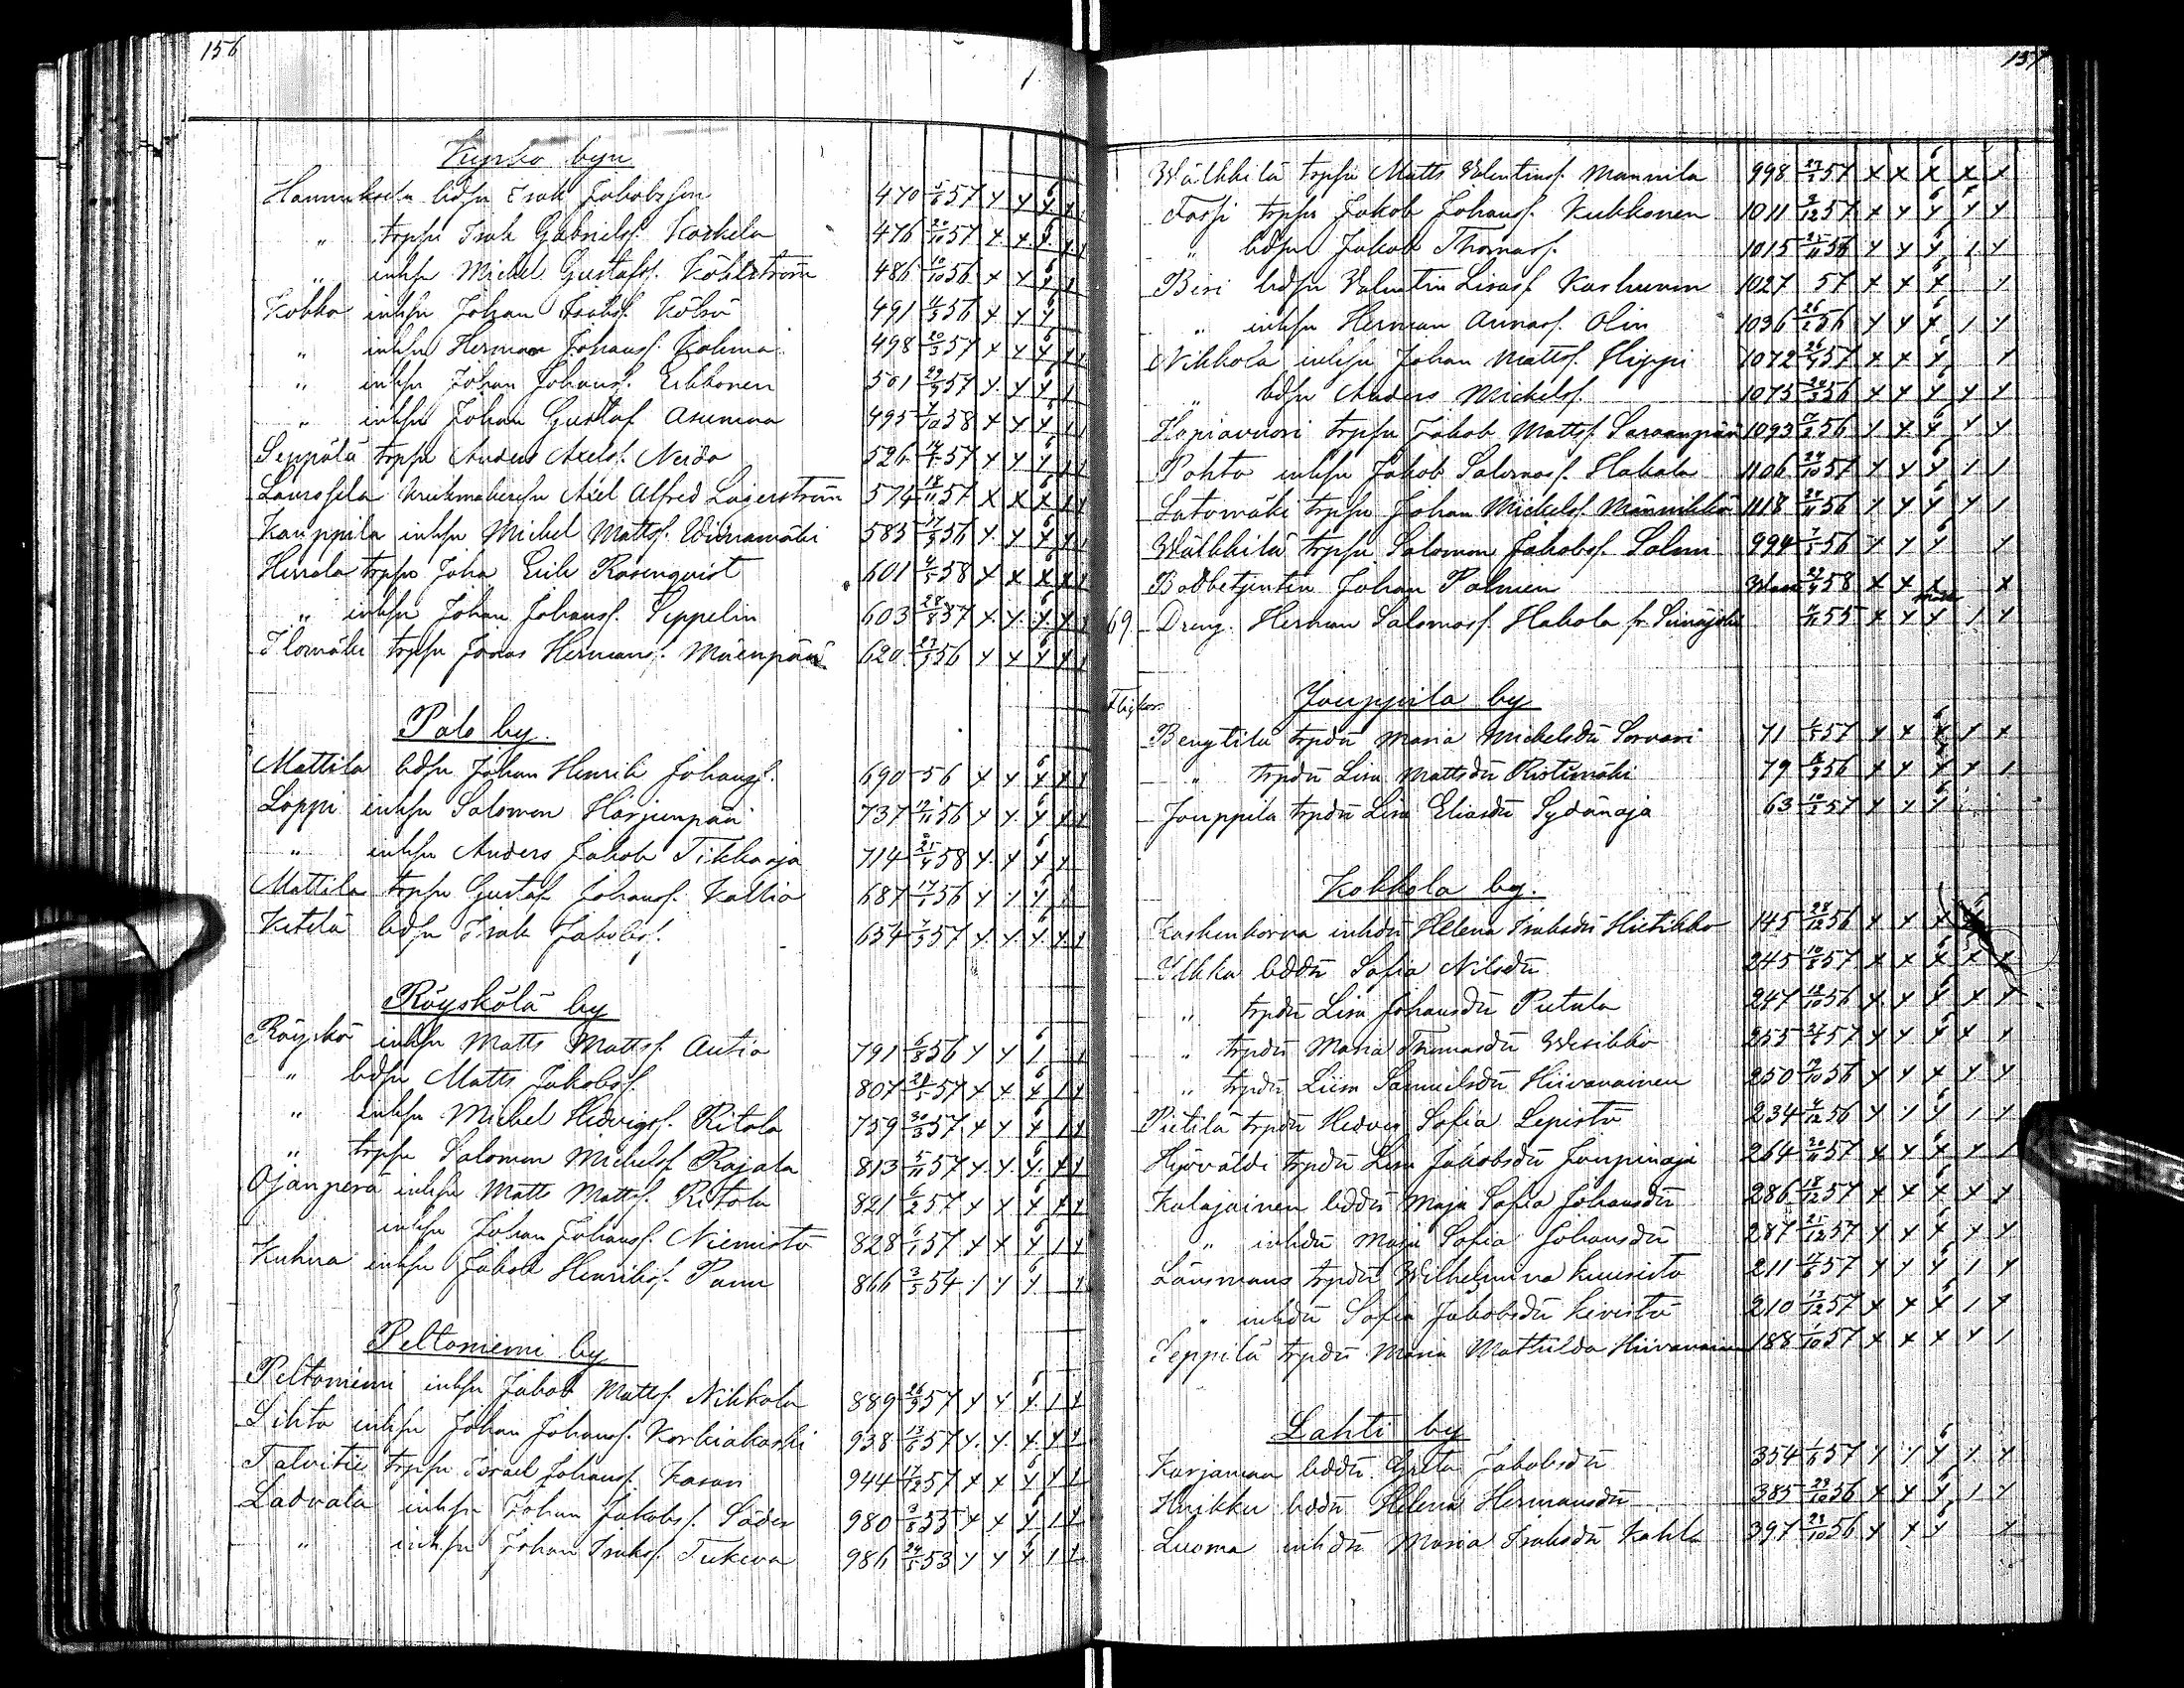 156
1
Kyrko byn
Hannuksela bdsn Isak Jakobsson 470 5/6 57 x x x x x
„ trpsn Isak Gabrielss. Koskela 476 20/10 57 x x x x x
„ inhsn Michel Gustafss. Köhlström 486 10/10 56 x x x x x
Kobka inhsn Johan Isaks. 491 4/3 56 x x x
„ inhsn Herman Johanss. 498 20/3 57 x x x x x
„ inhsn Johan Johanss. Erkkonen 501 29/9 57 x x x x x
„ inhsn Johan Gustaf Asumaa 495 7/10 58 x x x x x
Seppälä trpsn Anders Axels. 526 14/5 57 x x x x x
Laurosela Axel Alfred Lagerström 574 18/11 57 x x x x x
Kauppila inhsn Michel Mattss. 583 17/3 56 x x x x x
Herrala trpsn Joha Erik Rosenqvist 601 4/5 58 x x x x x
„ inhsn Johan Johanss. Seppelin 603 28/8 57 x x x x x
Ilomäki trpsn Jonas Hermans. Mäenpää 620 27/3 56 x x x x x
Palo by.
Mattila bdsn Johan Henrik Johanss. 690 56 x x x x x
Loppi inhsn Salomon Harjunpää 737 12/11 56 x x x x x
„ inhsn Anders Jakob Tikkaoja 714 25/4 58 x x x x
Mattila trpsn Gustaf Johanss. Kallio 687 17/1 56 x x x x
Ketelä bdsn Isak Jakobs. 654 7/3 57 x x x x x
Röyskölä by
Röyskö inhsn Matts Mattss. Autio 791 6/8 56 x x 1 1
„ bdsn Matts Jakobss. 807 21/5 57 x x x 1 x
„ inhsn Michel Hedvigs. Ritola 759 30/3 57 x x x 1 x
„ trpsn Salomon Michelss. Rajala 813 5/11 57 x x x x x
Ojanperä inhsn Matts Mattss. Ritola 821 6/2 57 x x x x x
inhsn Johan Johanss. Niemistö 828 6/1 57 x x x 1 x
Kuhna inhsn Jakob Henrikss. Panu 866 3/5 54 1 x x x
Peltoniemi by
Peltoniemi inhsn Jakob Mattss. Nikkola 889 26/9 57 x x x 1 x
Lihto inhsn Johan Johanss. Korkiakoski 938 13/6 57 x x x x x
Talvitie trpsn Israel Johanss. Kasari 944 17/12 57 x x x x x
Ladvala inhsn Johan Jakobss. Söder 980 3/8 55 x x x 1 x
„ inhsn Johan Isakss. Tukeva 986 24/5 53 x x x 1 1
157
Wälkkilä trpsn Matts Valentinss. Mannila 998 27/2 57 x x x x x
Fossi trpsn Jakob Johanss. Kukkonen 1011 2/12 57 x x x x x
„ bdsn Jakob Thomass. 1015 25/11 56 x x x 1 x
Beri bdsn Valentin Lisass. Kaskunen 1027 57 x x x x
„ inhsn Herman Annass. Olin 1036 26/2 56 x x x 1 x
Nikkola inhsn Johan Mattss. Hippi 1072 26/4 57 x x x x
„ bdsn Anders Michelss. 1075 56 x x x x x
Hopiavuori trpsn Jakob Mattss. Saraanpää 1093 56 x x x x x
Pohto inhsn Jakob Salomss. Hakala 1106 24/10 57 x x x 1 1
Latomäki trpsn Johan Michelss. Männikkö 1118 24/11 56 x x x x 1
Wälkkilä trpsn Salomon Jakobss. Salmi 994 7/3 56 x x x x
Bodbetjenten Johan Palmén 58 x x x x
69. Dreng. Herman Salomss. Hakola fr Seinäjoki 55 x x x 1 x
Flickor.
Jouppila by
Bengtila trpdr Maria Michelsdr Sorvari 71 57 x x x x x
„ trpdr Lisa Mattsdr Ristimäki 79 56 x x x x 1
Jouppila trpdr Lisa Eliasdr Sydänoja 63 57 x x x
Kokkola by.
Koskenkorva inhdr Helena Isaksdr Hietikko 145 28/12 56 x x x
Ilkka bddr Sofia Nilsdr 245 10/6 57 x x x x x
„ trpdr Lisa Johansdr Pietala 247 12/10 56 x x x x x
„ trpdr Maria Thomasdr Wesikko 255 57 x x x x x
„ trpdr Liisa Samuelsdr Hiivanainen 250 19/10 56 x x x x x
Pietilä trpdr Hedvig Sofia Lepistö 234 4/12 56 x x x 1 x
Hyövälti trpdr Lisa Jakobsdr Joupinoja 264 20/11 57 x x x x 1
Kalajainen bddr Maja Sofia Johansdr 286 18/12 57 x x x x x
„ inhdr Maja Sofia Johansdr 287 25/12 57 x x x x x
Länsmans trpdr Wilhelmina Kuusisto 211 17/6 57 x x x 1 x
„ inhdr Sofia Jakobsdr Kivistö 210 13/12 57 x x x 1 x
Seppilä trpdr Maria Mathilda Hiivanainen 188 1/10 57 x x x x 1
Lahti by
Karjanmaa bddr. Greta Jakobsdr 354 1/6 57 x x x 1 x
Knikku bddr Helena Hermansdr 385 23/10 56 x x x 1 x
Luoma inhdr Maria Isaksdr Kahla 397 23/10 56 x x x x